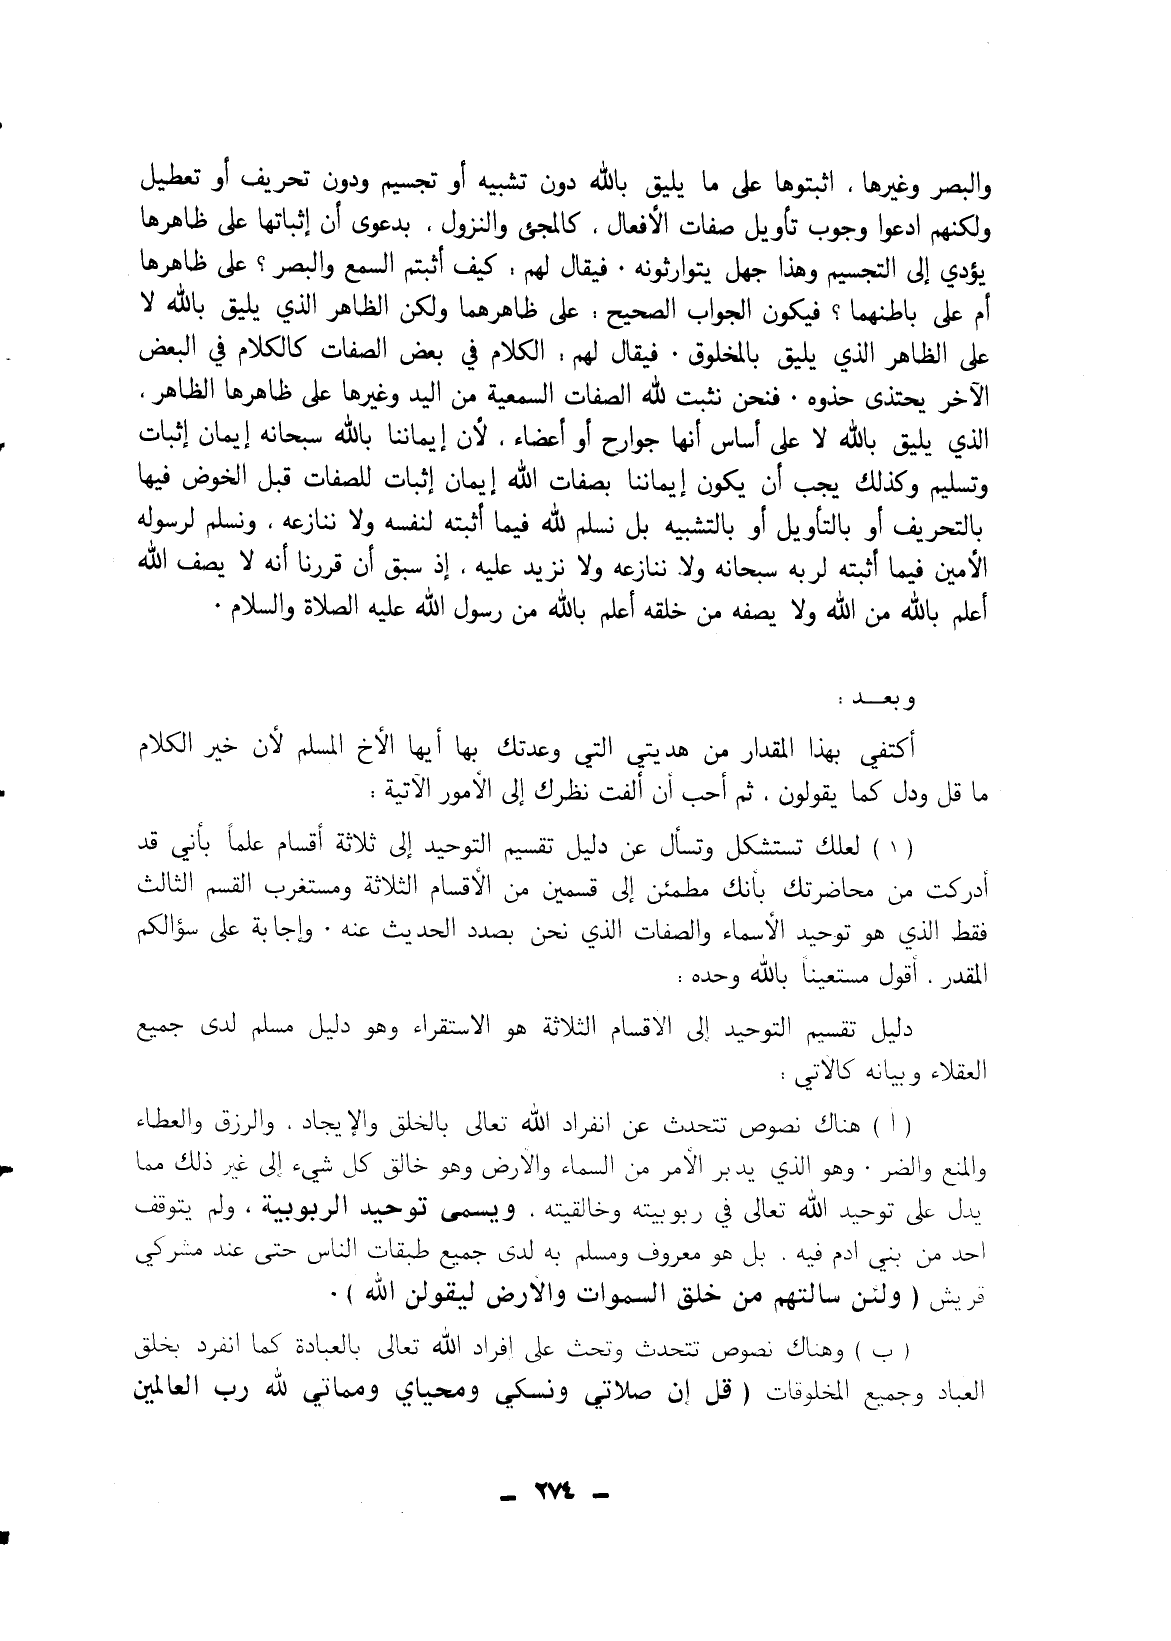 والبصر وغيرها ، اثبتوها على ما يليق بالله دون تشبيه أو تجسيم ودون تحريف أو تعطيل
ولكنهم ادعوا وجوب تأويل صفات الأفعال ، كالمجئ والنزول ، بدعوى أن إثباتها على ظاهرها
يؤدي إلى التجسيم وهذا جهل يتوارثونه · فيقال لهم : كيف أثبتم السمع والبصر ؟ على ظاهرها
أم على باطنهما ؟ فيكون الجواب الصحيح : على ظاهرهما ولكن الظاهر الذي يليق بالله لا
على الظاهر الذي يليق بالمخلوق · فيقال لهم : الكلام في بعض الصفات كالكلام في البعض
الآخر يحتذى حذوه · فنحن نثبت لله الصفات السمعية من اليد وغيرها على ظاهرها الظاهر ،
الذي يليق بالله لا على أساس أنها جوارح أو أعضاء ، لأن إيماننا بالله سبحانه إيمان إثبات
وتسليم وكذلك يجب أن يكون إيماننا بصفات الله إيمان إثبات للصفات قبل الخوض فيها
بالتحريف أو بالتأويل أو بالتشبيه بل نسلم لله فيما أثبته لنفسه ولا ننازعه ، ونسلم لرسوله
الأمين فيما أثبته لربه سبحانه ولا ننازعه ولا نزيد عليه ، إذ سبق أن قررنا أنه لا يصف الله
أعلم بالله من الله ولا يصفه من خلقه أعلم بالله من رسول الله عليه الصلاة والسلام ·
وبعـــد :
أكتفي بهذا المقدار من هديتي التي وعدتك بها أيها الأخ المسلم لأن خير الكلام
ما قل ودل كما يقولون ، ثم أحب أن ألفت نظرك إلى الأمور الآتية :
( ١ ) لعلك تستشكل وتسأل عن دليل تقسيم التوحيد إلى ثلاثة أقسام علماً بأني قد
أدركت من محاضرتك بأنك مطمئن إلى قسمين من الأقسام الثلاثة ومستغرب القسم الثالث
فقط الذي هو توحيد الأسماء والصفات الذي نحن بصدد الحديث عنه · وإجابة على سؤالكم
المقدر ، أقول مستعيناً بالله وحده :
دليل تقسيم التوحيد إلى الاقسام الثلاثة هو الاستقراء وهو دليل مسلم لدى جميع
العقلاء وبيانه كالآتي :
( أ ) هناك نصوص تتحدث عن انفراد الله تعالى بالخلق والإيجاد ، والرزق والعطاء
والمنع والضر · وهو الذي يدبر الأمر من السماء والأرض وهو خالق كل شيء إلى غير ذلك مما
يدل على توحيد الله تعالى في ربوبيته وخالقيته ، ويسمى توحيد الربوبية ، ولم يتوقف
احد من بني ادم فيه ، بل هو معروف ومسلم به لدى جميع طبقات الناس حتى عند مشركي
قريش ( ولئن سالتهم من خلق السموات والأرض ليقولن الله ) ·
( ب ) وهناك نصوص تتحدث وتحث على إفراد الله تعالى بالعبادة كما انفرد بخلق
العباد وجميع المخلوقات ( قل إن صلاتي ونسكي ومحياي ومماتي لله رب العالمين
ـ ٢٧٤ ـ